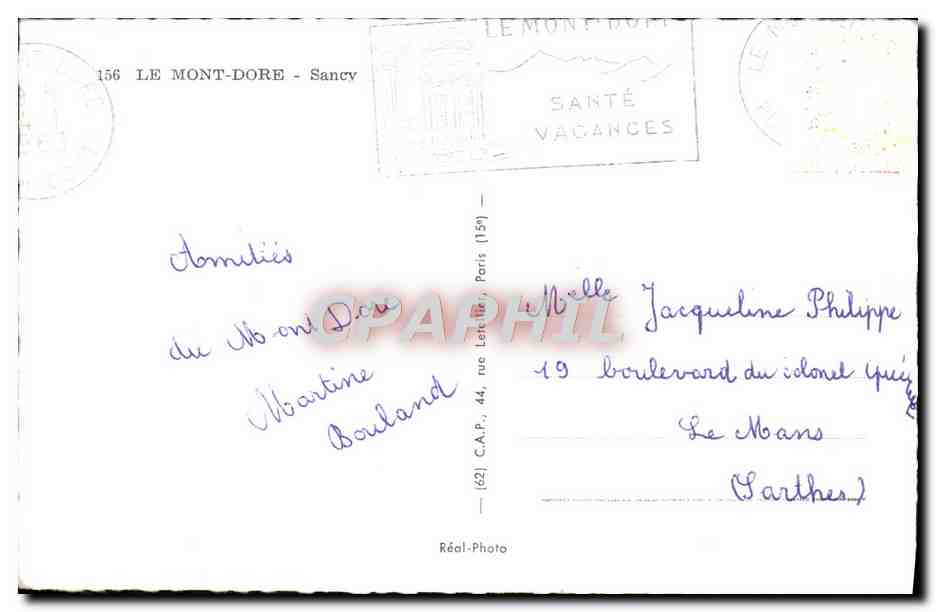 156 LE MONT-DORE - Sancy
LE MONT-DORE
SANTÉ
VACANCES
Amitiés
du Mont Dore
Martine
Bouland
(62) C.A.P., 44, rue Letellier, Paris (15e)
CPAPHIL
Melle Jacqueline Philippe
19 boulevard du colonel
Le Mans
(Sarthes)
Réal-Photo